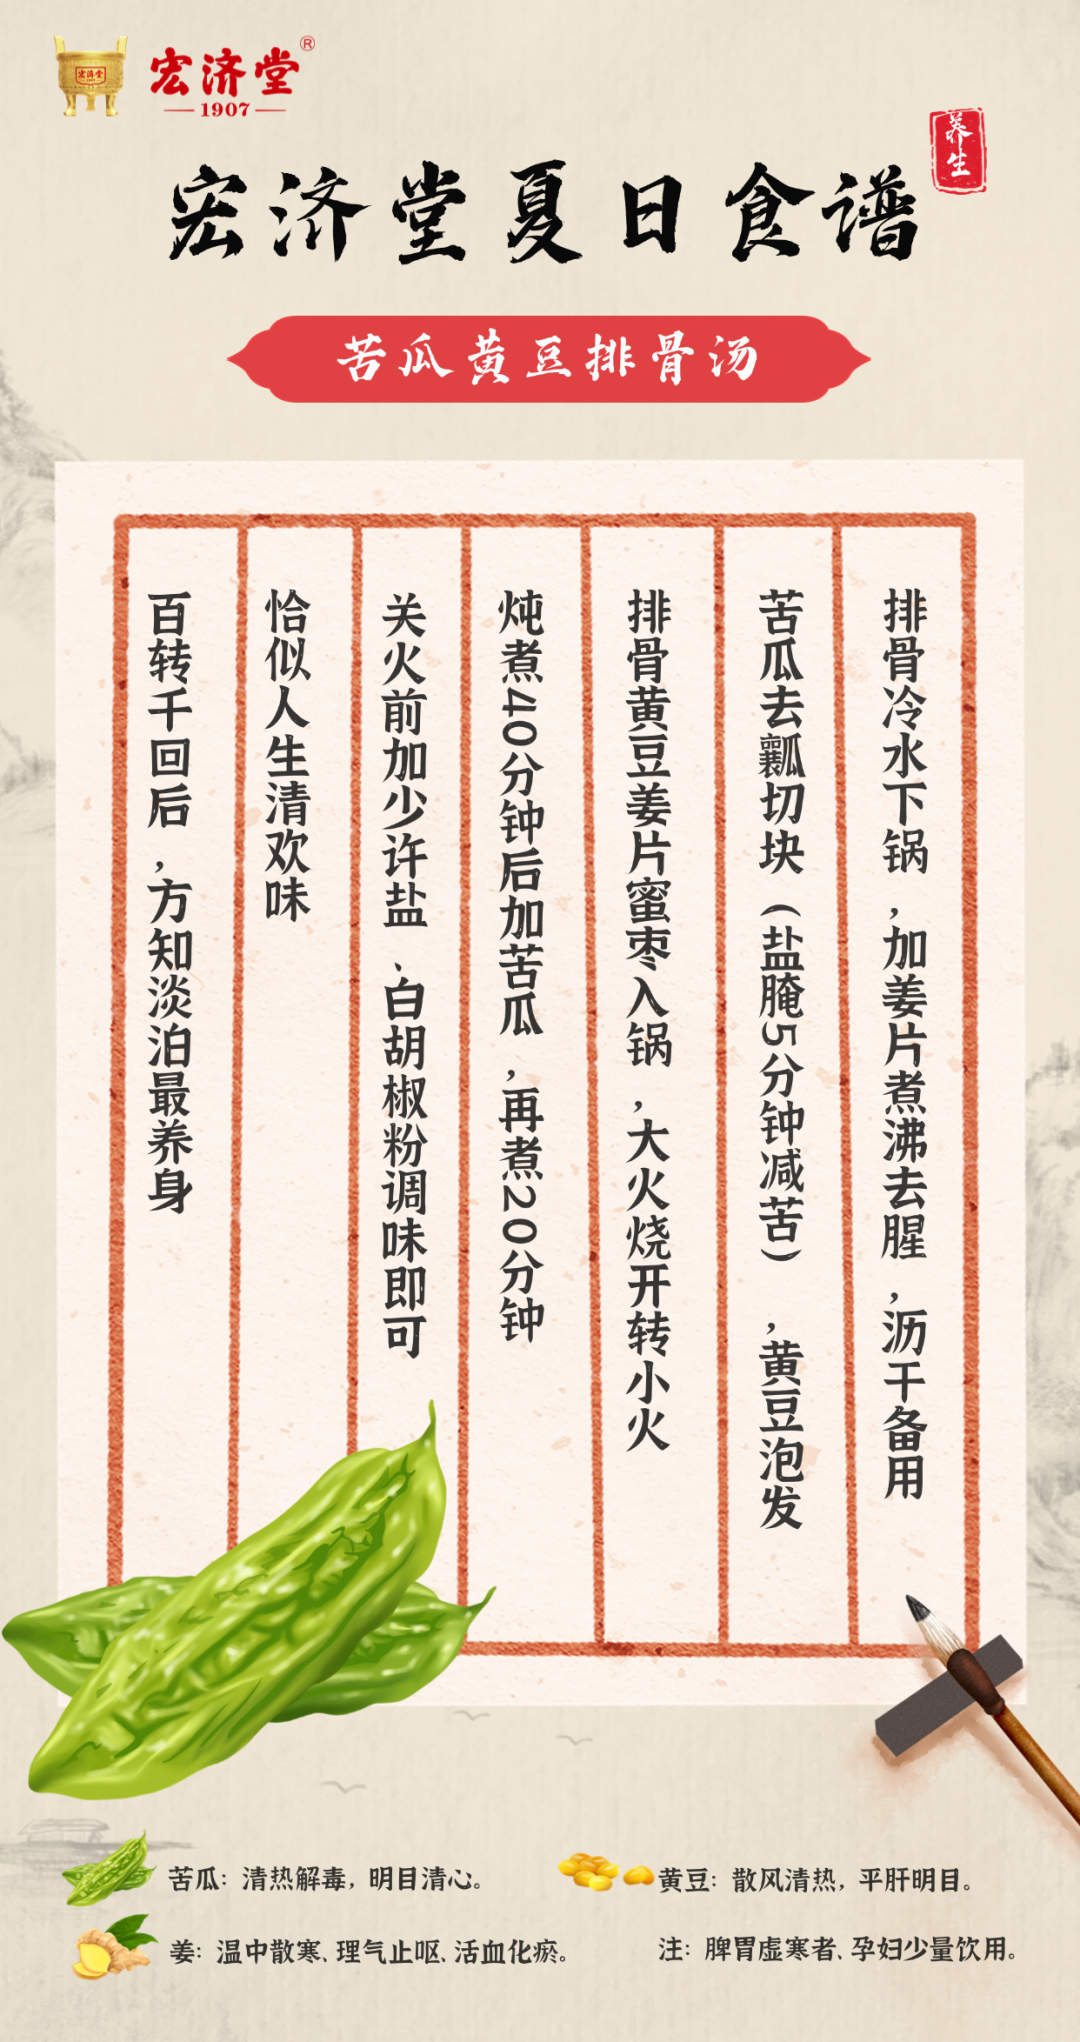 宏济堂
宏济堂®
1907
养生
宏济堂夏日食谱
苦瓜黄豆排骨汤
排骨冷水下锅，加姜片煮沸去腥，沥干备用
苦瓜去瓤切块（盐腌5分钟减苦），黄豆泡发
排骨黄豆姜片蜜枣入锅，大火烧开转小火
炖煮40分钟后加苦瓜，再煮20分钟
关火前加少许盐、白胡椒粉调味即可
恰似人生清欢味
百转千回后，方知淡泊最养身
苦瓜：清热解毒，明目清心。
黄豆：散风清热，平肝明目。
姜：温中散寒、理气止呕、活血化瘀。
注：脾胃虚寒者、孕妇少量饮用。